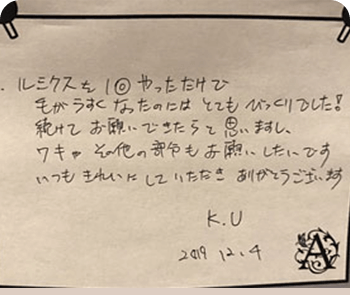 . ルミクスを1回やっただけで
毛がうすくなったのにはとてもびっくりでした!
続けてお願いできたらと思いますし、
ワキやその他の部分もお願いしたいです
いつもきれいにしていただきありがとうございます
K.U
2019 12.4
A